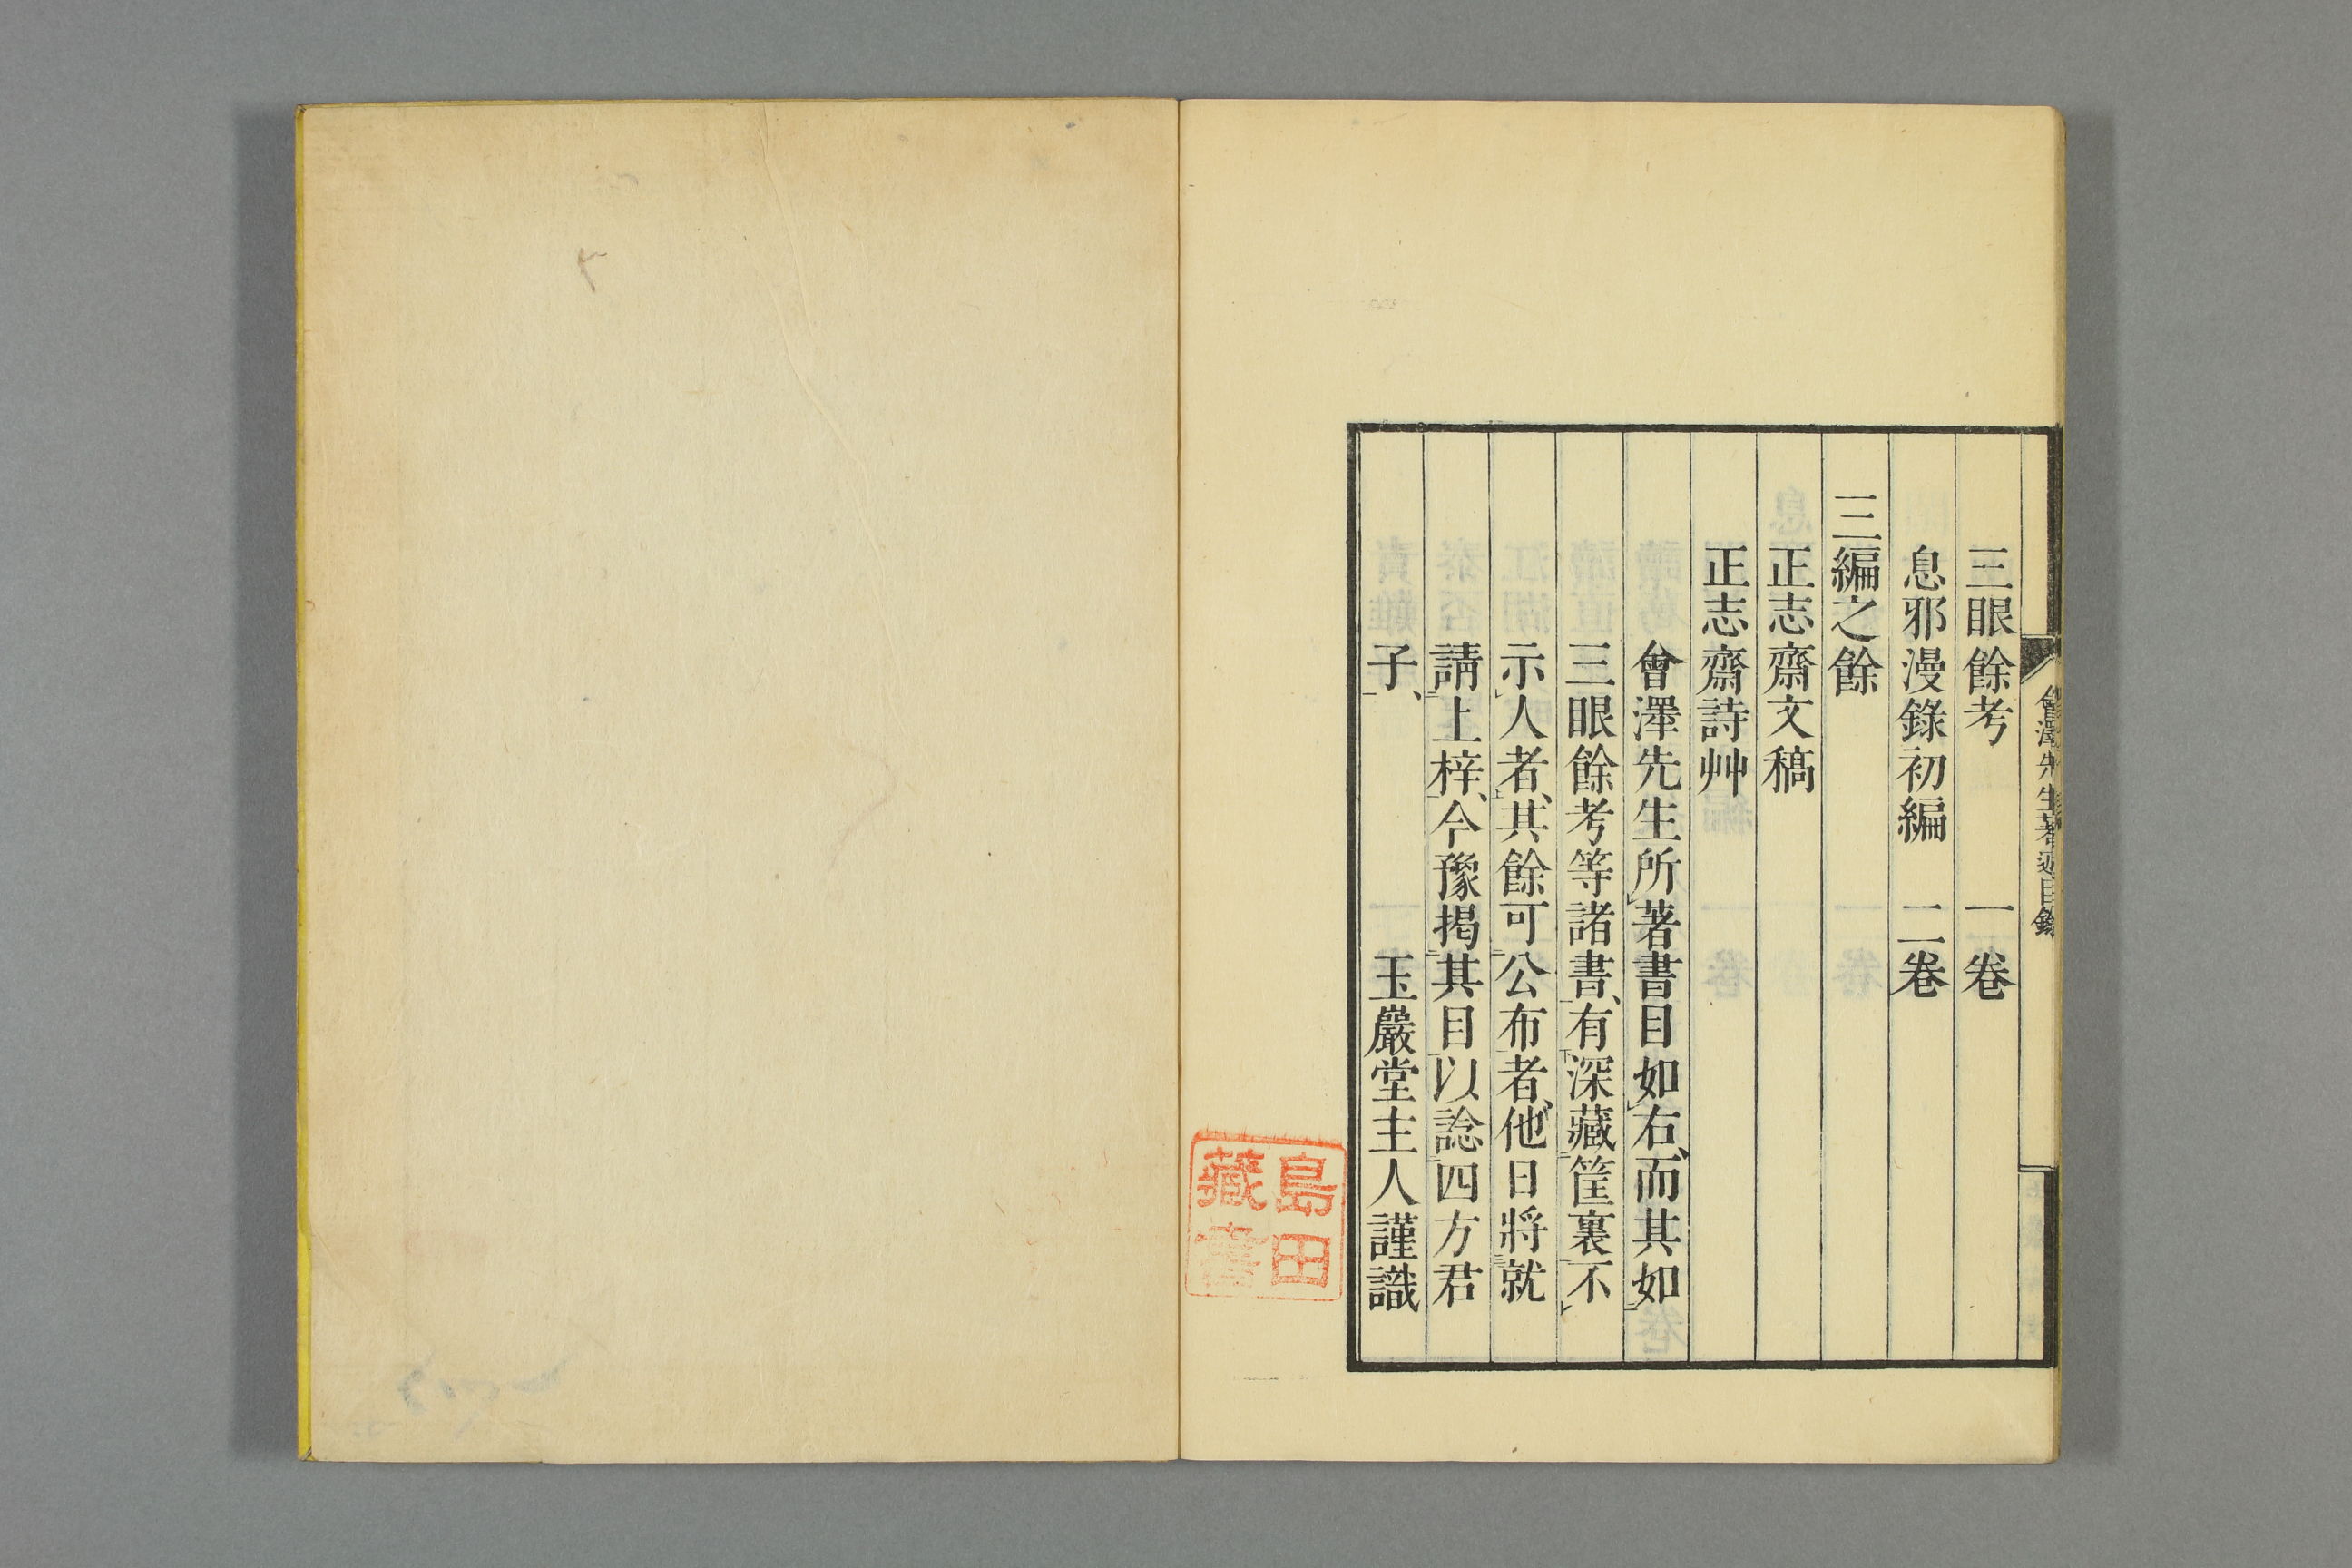 會澤先生著述目錄
三眼餘考　一卷
息邪漫錄初編　二卷
三編之餘
正志齋文稿
正志齋詩艸
會澤先生所著書目如右、而其如
三眼餘考等諸書、有深藏筐裏不
示人者、其餘可公布者、他日將就
請上梓、今豫揭其目以諗四方君
子、
玉巖堂主人謹識
島田
藏書